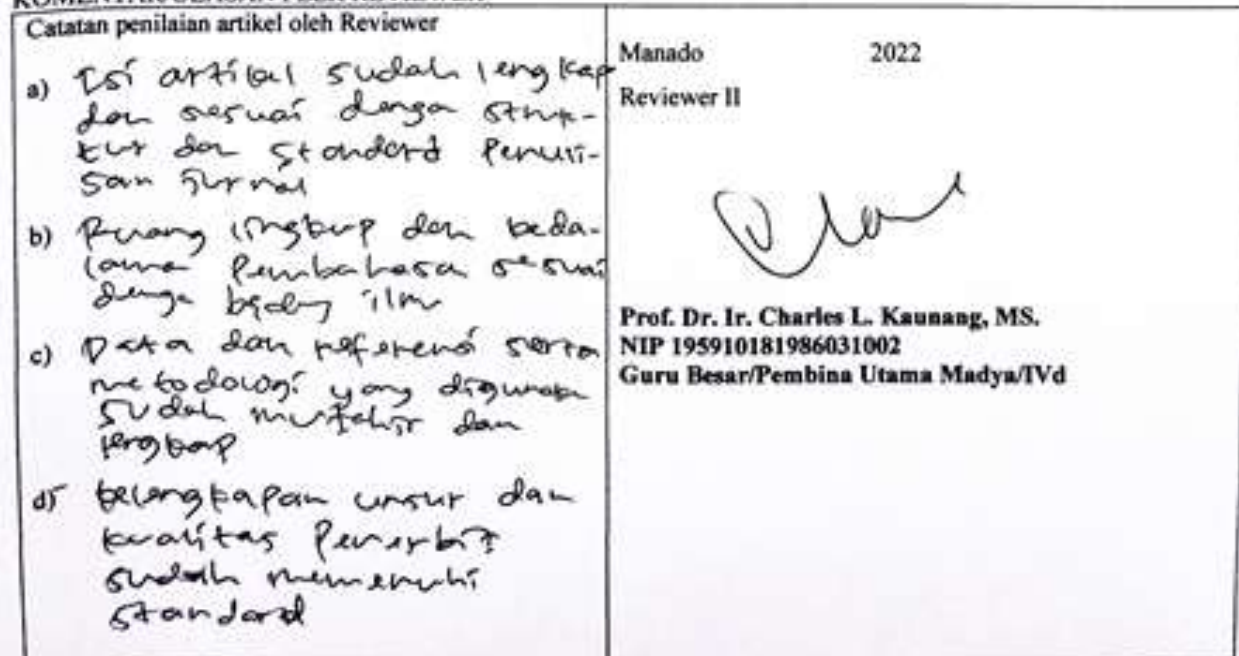 Catatan penilaian artikel oleh Reviewer
a) Isi artikel sudah lengkap
dan sesuai denga struk-
tur dan standard Penuli-
san jurnal
b) Ruang lingkup dan keda-
lama Pembahasa sesuai
denga bidang ilmu
c) Data dan referensi serta
metodologi yang digunakan
sudah mutahir dan
lengkap
d) kelengkapan unsur dan
kualitas Penerbit
sudah memenuhi
standard
Manado 2022
Reviewer II
Prof. Dr. Ir. Charles L. Kaunang, MS.
NIP 195910181986031002
Guru Besar/Pembina Utama Madya/IVd